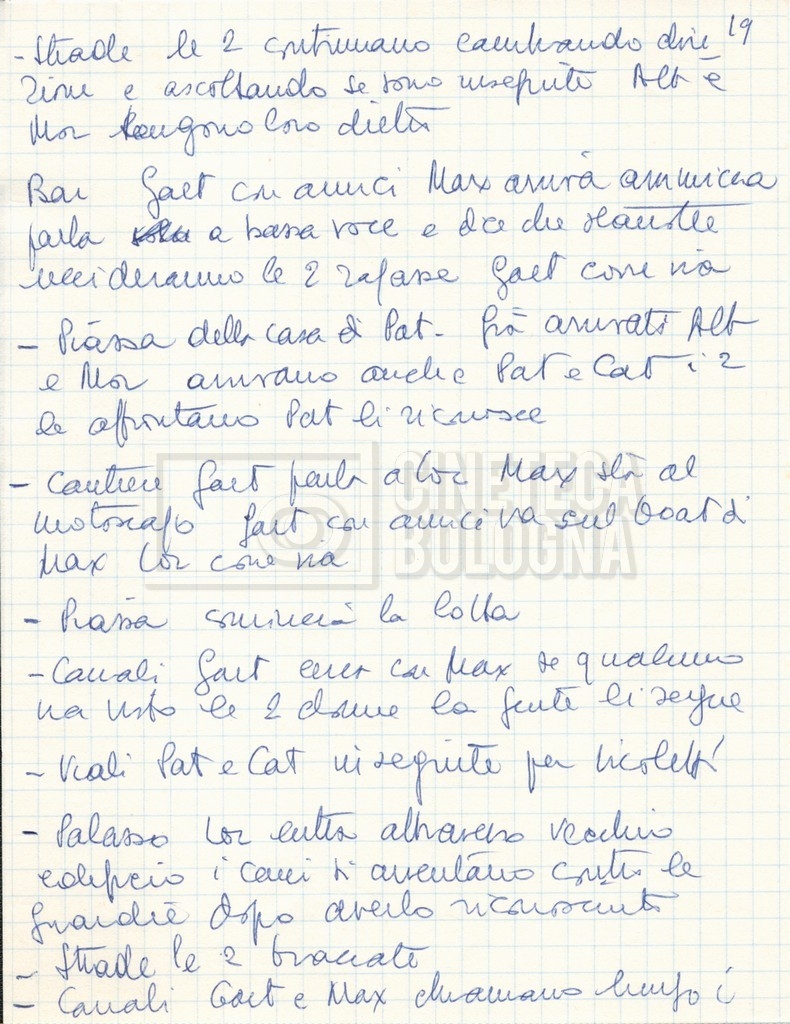 19
- Strade le 2 continuano cambiando dire
zione e ascoltando se sono inseguite Alb e
Mor tengono loro dietro
Bar Gaet con amici Max arriva ammicca
parla a bassa voce e dice che stanotte
uccideranno le 2 ragazze Gaet corre via
- Piazza della casa di Pat. Già arrivati Alb
e Mor arrivano anche Pat e Cat i 2
le affrontano Pat li riconosce
- Cantiere Gaet parla a Lor Max sta al
motoscafo Gaet con amici va sul boat di
Max Lor corre via
- Piazza comincia la lotta
- Canali Gaet cerca con Max se qualcuno
ha visto le 2 donne la gente li segue
- Viali Pat e Cat inseguite per vicoletti
- Palazzo Lor entra attraverso vecchio
edificio i cani si avventano contro le
guardie dopo averlo riconosciuto
- Strade le 2 braccate
- Canali Gaet e Max chiamano lungo i
CINETECA
BOLOGNA